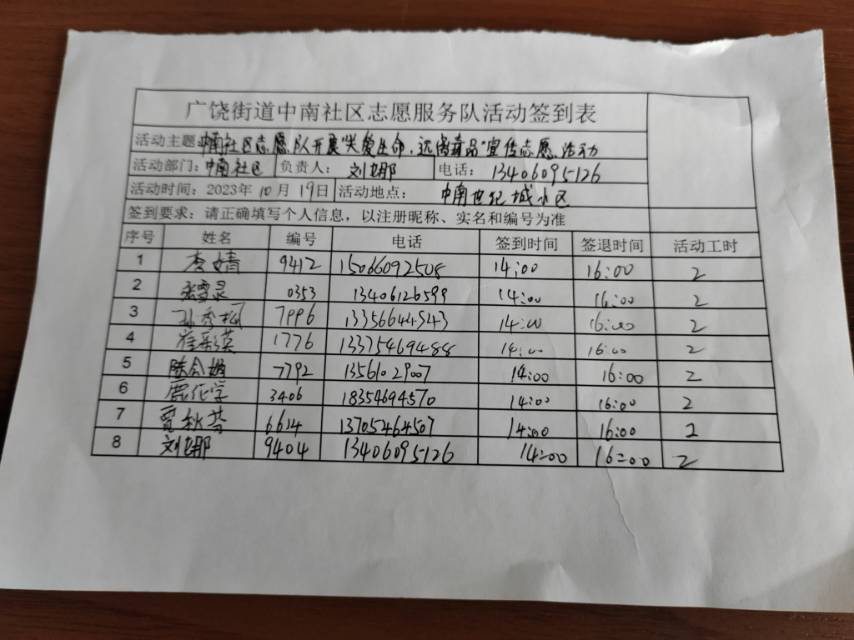 广饶街道中南社区志愿服务队活动签到表
活动主题 中南社区志愿队开展"关爱生命,远离毒品"宣传志愿活动
活动部门:中南社区 负责人: 刘娜 电话: 13406095126
活动时间:2023年10月19日 活动地点: 中南世纪城小区
签到要求:请正确填写个人信息,以注册昵称、实名和编号为准
序号 姓名 编号 电话 签到时间 签退时间 活动工时
1 李婧 9412 15066092508 14:00 16:00 2
2 0353 13406126599 14:00 16:00 2
3 7996 13356644543 14:00 16:00 2
4 1776 13375469488 14:00 16:00 2
5 7792 13561029007 14:00 16:00 2
6 3406 18354694570 14:00 16:00 2
7 贾秋芬 6614 13705464507 14:00 16:00 2
8 刘娜 9404 13406095126 14:00 16:00 2